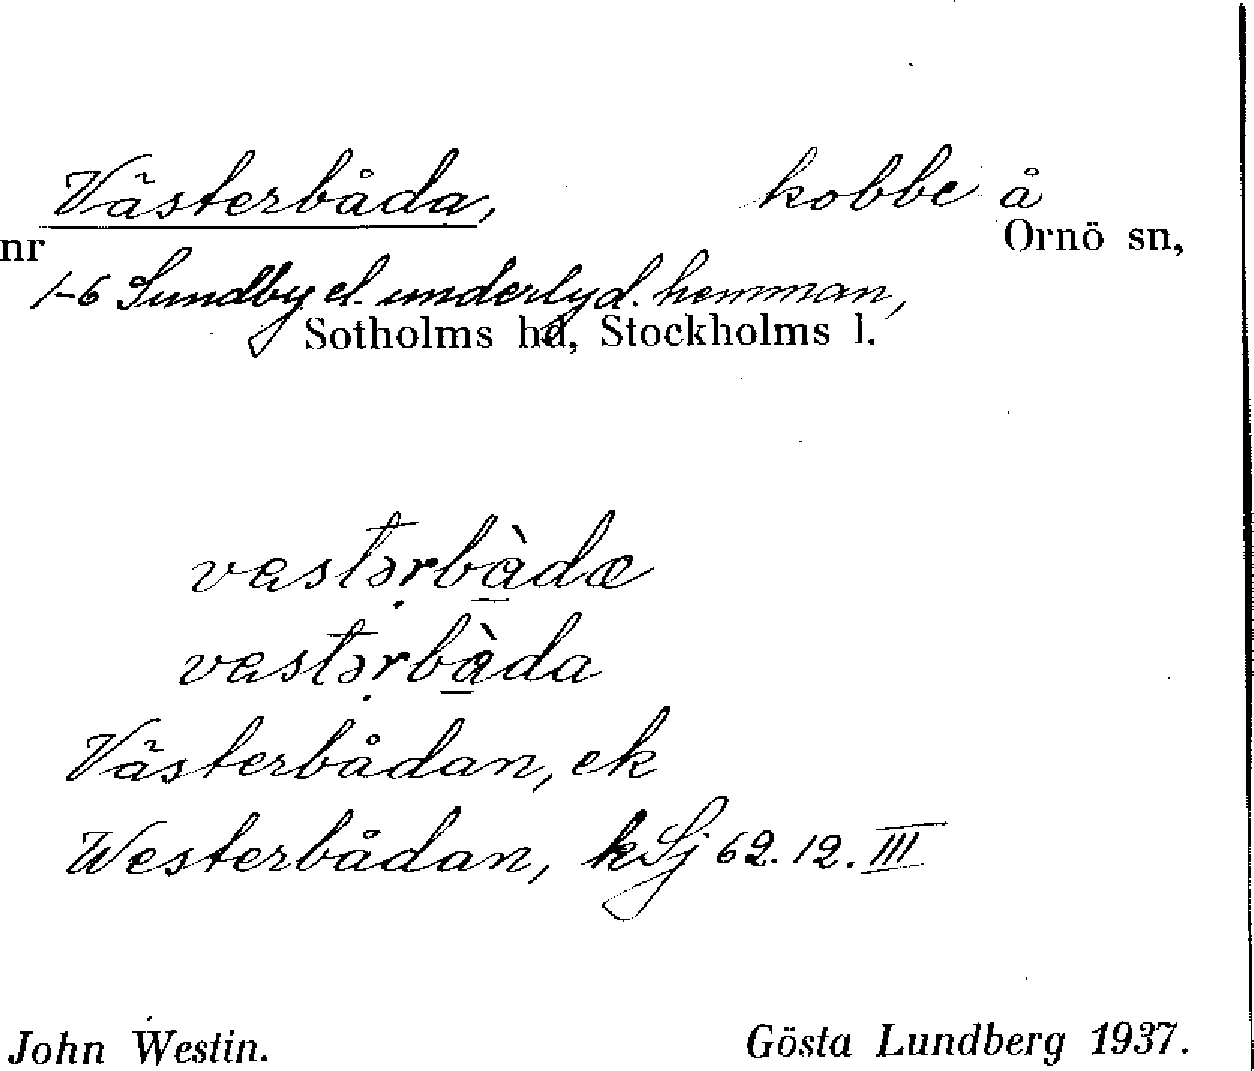 Västerbåda, kobbe å
nr Ornö sn,
1-6 Sundby el. underlyd. hemman,
Sotholms hd, Stockholms l.
vastərḅà̱dæ
vastərḅà̱da
Västerbådan, ek
Westerbådan, kSj 62. 12. III
John Westin. Gösta Lundberg 1937.